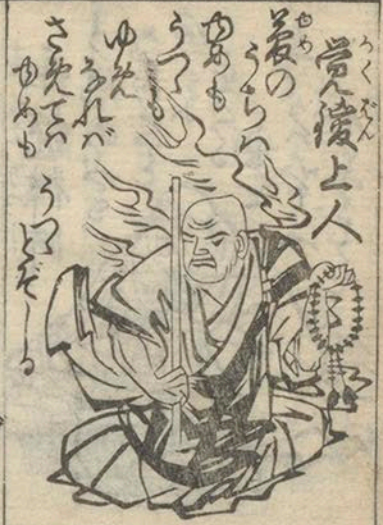 覚鑁上人
夢の
うちハ
ゆめも
うつゝも
ゆめ
なれバ
さめてハ
ゆめも
うつゝとぞしる